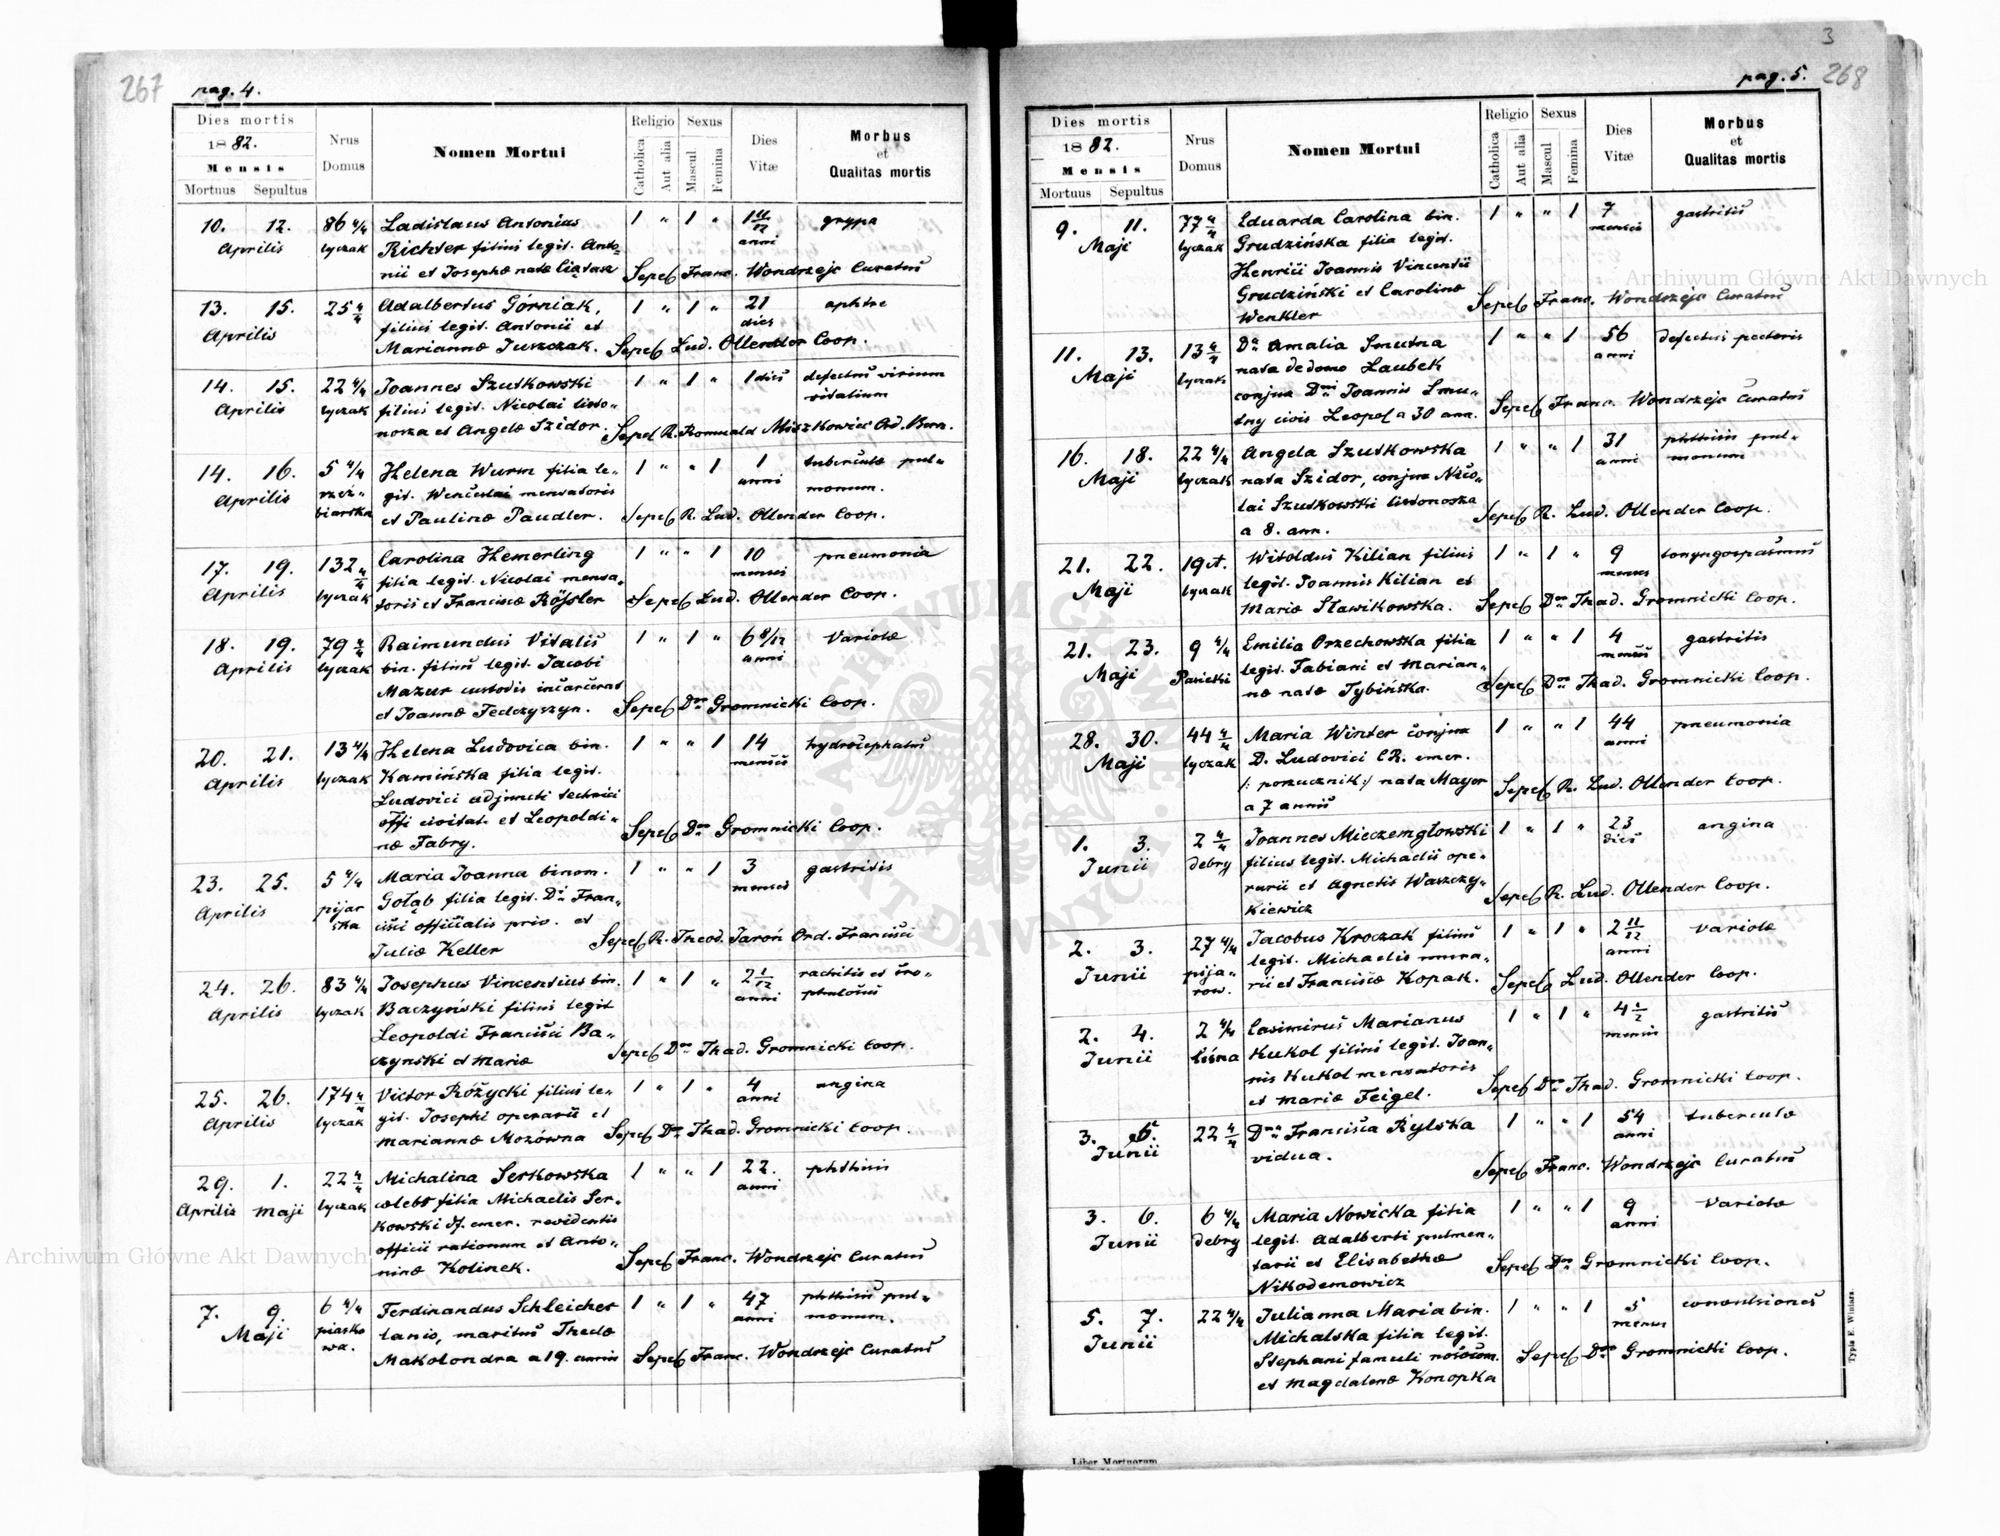 267
pag. 4.
Dies mortis
1882.
Mensis
Mortuus Sepultus
Nrus
Domus
Nomen Mortui
Religio
Catholica
Aut alia
Sexus
Mascul
Femina
Dies
Vitæ
Morbus
et
Qualitas mortis
10. 12. 86 4/4 Ladislaus Antonius 1 " 1 " 1 11/12 grypa
Aprilis lyczak Richter filius legit. Anto= anni
nii et Josephæ natæ
Sepel Franc. Wondrzejc Curatus
13. 15. 25 4/4 Adalbertus Górniak, 1 " 1 " 21 aphtre
Aprilis filius legit. Antonii et dies
Mariannæ Juszczak. Sepel Lud. Ollender Coop.
14. 15. 22 4/4 Joannes Szutkowski 1 " 1 " 1 dies defectus virium
Aprilis lyczak filius legit. Nicolai listo= vitalium
nosza et Angelæ Szidor. Sepel R. Romuald Miszkowicz Ord. Bern.
14. 16. 5 4/4 Helena Wurm filia le= 1 " " 1 1 tuberculæ pul=
Aprilis rzeź= git. Wenceslai mensatoris anni monum.
biarska et Paulinæ Paudler. Sepel R. Lud. Ollender Coop.
17. 19. 132 4/4 Carolina Hemerling 1 " " 1 10 pneumonia
Aprilis lyczak filia legit. Nicolai mensa= menses
toris et Francisæ Rößler Sepel Lud. Ollender Coop.
18. 19. 79 4/4 Raimundus Vitalis 1 " 1 " 6 8/12 Variolæ
Aprilis lyczak bin. filius legit. Jacobi anni
Mazur custodis incarcerat
et Joannæ Fedczyszyn. Sepel Dr Gromnicki Coop.
20. 21. 13 4/4 Helena Ludovica bin. 1 " " 1 14 hydrocephalus
Aprilis lyczak Kamińska filia legit. mensis
Ludovici adjuncti technici
offi civitat. et Leopoldi= Sepel Dr Gromnicki Coop.
næ Fabry.
23. 25. 5 4/4 Maria Joanna binom. 1 " " 1 3 gastritis
Aprilis pijar Gołąb filia legit. Di Fran= menses
ska cisci officialis priv. et
Juliæ Keller Sepel R. Theod. Jaroń Ord. Francisci
24. 26. 83 4/4 Josephus Vincentius bin. 1 " 1 " 2 1/12 rachitis et scro=
Aprilis lyczak Baczyński filius legit anni phulosus
Leopoldi Francisci Ba=
czynski et Mariæ Sepel Dr Thad. Gromnicki Coop.
25. 26. 174 4/4 Victor Różycki filius le= 1 " 1 " 4 angina
Aprilis lyczak git. Josephi operarii et anni
Mariannæ Mozówna Sepel Dr Thad. Gromnicki Coop.
29. 1. 22 4/4 Michalina Serkowska 1 " " 1 22. phthisis
Aprilis Maji lyczak cælebs filia Michaelis Ser= anni
kowski emer. revidentis
officii rationum et Anto=
ninæ Kolinek. Sepel Franc. Wondrzejc Curatus
7. 9. 6 4/4 Ferdinandus Schleicher 1 " 1 " 47 phthisis pul=
Maji piasko lanio, maritus Theclæ anni monum.
wa. Makolondra a 19. annis Sepel Franc. Wondrzejc Curatus
3
pag. 5. 268
Dies mortis
1882.
Mensis
Mortuus Sepultus
Nrus
Domus
Nomen Mortui
Religio
Catholica
Aut alia
Sexus
Mascul
Femina
Dies
Vitæ
Morbus
et
Qualitas mortis
9. 11. 77 4/4 Eduarda Carolina bin. 1 " " 1 7 gastritis
Maji lyczak Grudzińska filia legit. menses
Henrici Joannis Vincentii
Grudziński et Carolinæ Sepel Franc. Wondrzejc Curatus
Wenkler
11. 13. 13 4/4 Da Amalia Smutna 1 " " 1 56 defectus pectoris
Maji lyczak nata de domo Laubek anni
conjux Dni Joannis Smu=
tny civis Leopol a 30 ann. Sepel Franc. Wondrzejc Curatus
16. 18. 22 4/4 Angela Szutkowska 1 " " 1 31 phthisis pul=
Maji lyczak nata Szidor, conjux Nico= anni monum
lai Szutkowski listonosza
a 8. ann. Sepel R. Lud. Ollender Coop.
21. 22. 19 t. Witoldus Kilian filius 1 " 1 " 9 laryngospasmus
Maji lyczak legit. Joannis Kilian et menses
Mariæ Sławikowska. Sepel Dr Thad. Gromnicki Coop.
21. 23. 9 4/4 Emilia Orzechowska filia 1 " " 1 4 gastritis
Maji Pasieki legit. Fabiani et Marian= menses
næ natæ Tybińska. Sepel Dr Thad. Gromnicki Coop.
28. 30. 44 4/4 Maria Winter conjux 1 " " 1 44 pneumonia
Maji lyczak D. Ludovici CR. emer. anni
/: porucznik :/ nata Mayer
a 7 annis Sepel R. Lud. Ollender Coop.
1. 3. 2 4/4 Joannes Mieczemgłowski 1 " 1 " 23 angina
Junii debry filius legit. Michaelis ope= dies
rarii et Agnetis Waszczy=
kiewicz Sepel R. Lud. Ollender Coop.
2. 3. 27 4/4 Jacobus Kroczak filius 1 " 1 " 2 11/12 variolæ
Junii pija= legit. Michaelis mura= anni
row. rii et Franciscæ Kopak. Sepel Lud. Ollender Coop.
2. 4. 2 4/4 Casimirus Marianus 1 " 1 " 4 1/2 gastritis
Junii leśna Kukol filius legit. Joan= mensis
nis Kukol mensatoris
et Mariæ Feigel. Sepel Dr Thad. Gromnicki Coop.
3. 5. 22 4/4 Dna Francisca Rylska 1 " " 1 54 tuberculæ
Junii vidua. anni
Sepel Franc. Wondrzejc Curatus
3. 6. 6 4/4 Maria Nowicka filia 1 " " 1 9 Variolæ
Junii debry legit. Adalberti pulmen= anni
tarii et Elisabethæ
Nikodemowicz Sepel Dr Gromnicki Coop.
5. 7. 22 4/4 Julianna Maria bin. 1 " " 1 5 convulsiones
Junii Michalska filia legit. menses
Stephani famuli
et Magdalenæ Konopka Sepel Dr Gromnicki Coop.
Typis E. Winiarz.
Liber Mortuorum
Archiwum Główne Akt Dawnych
Archiwum Główne Akt Dawnych
ARCHIWUM GŁÓWNE AKT DAWNYCH